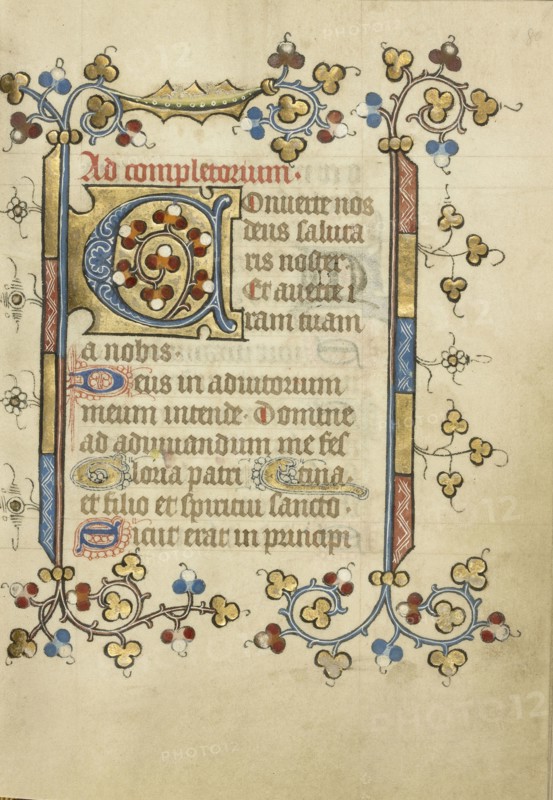 Ad completorium.
Conuerte nos
deus saluta
ris noster.
Et auerte i
ram tuam
a nobis.
Deus in adiutorium
meum intende. Domine
ad adiuuandum me fes
Gloria patri
et filio et spiritui sancto.
Sicut erat in principi
PHOTO12
PHOTO12